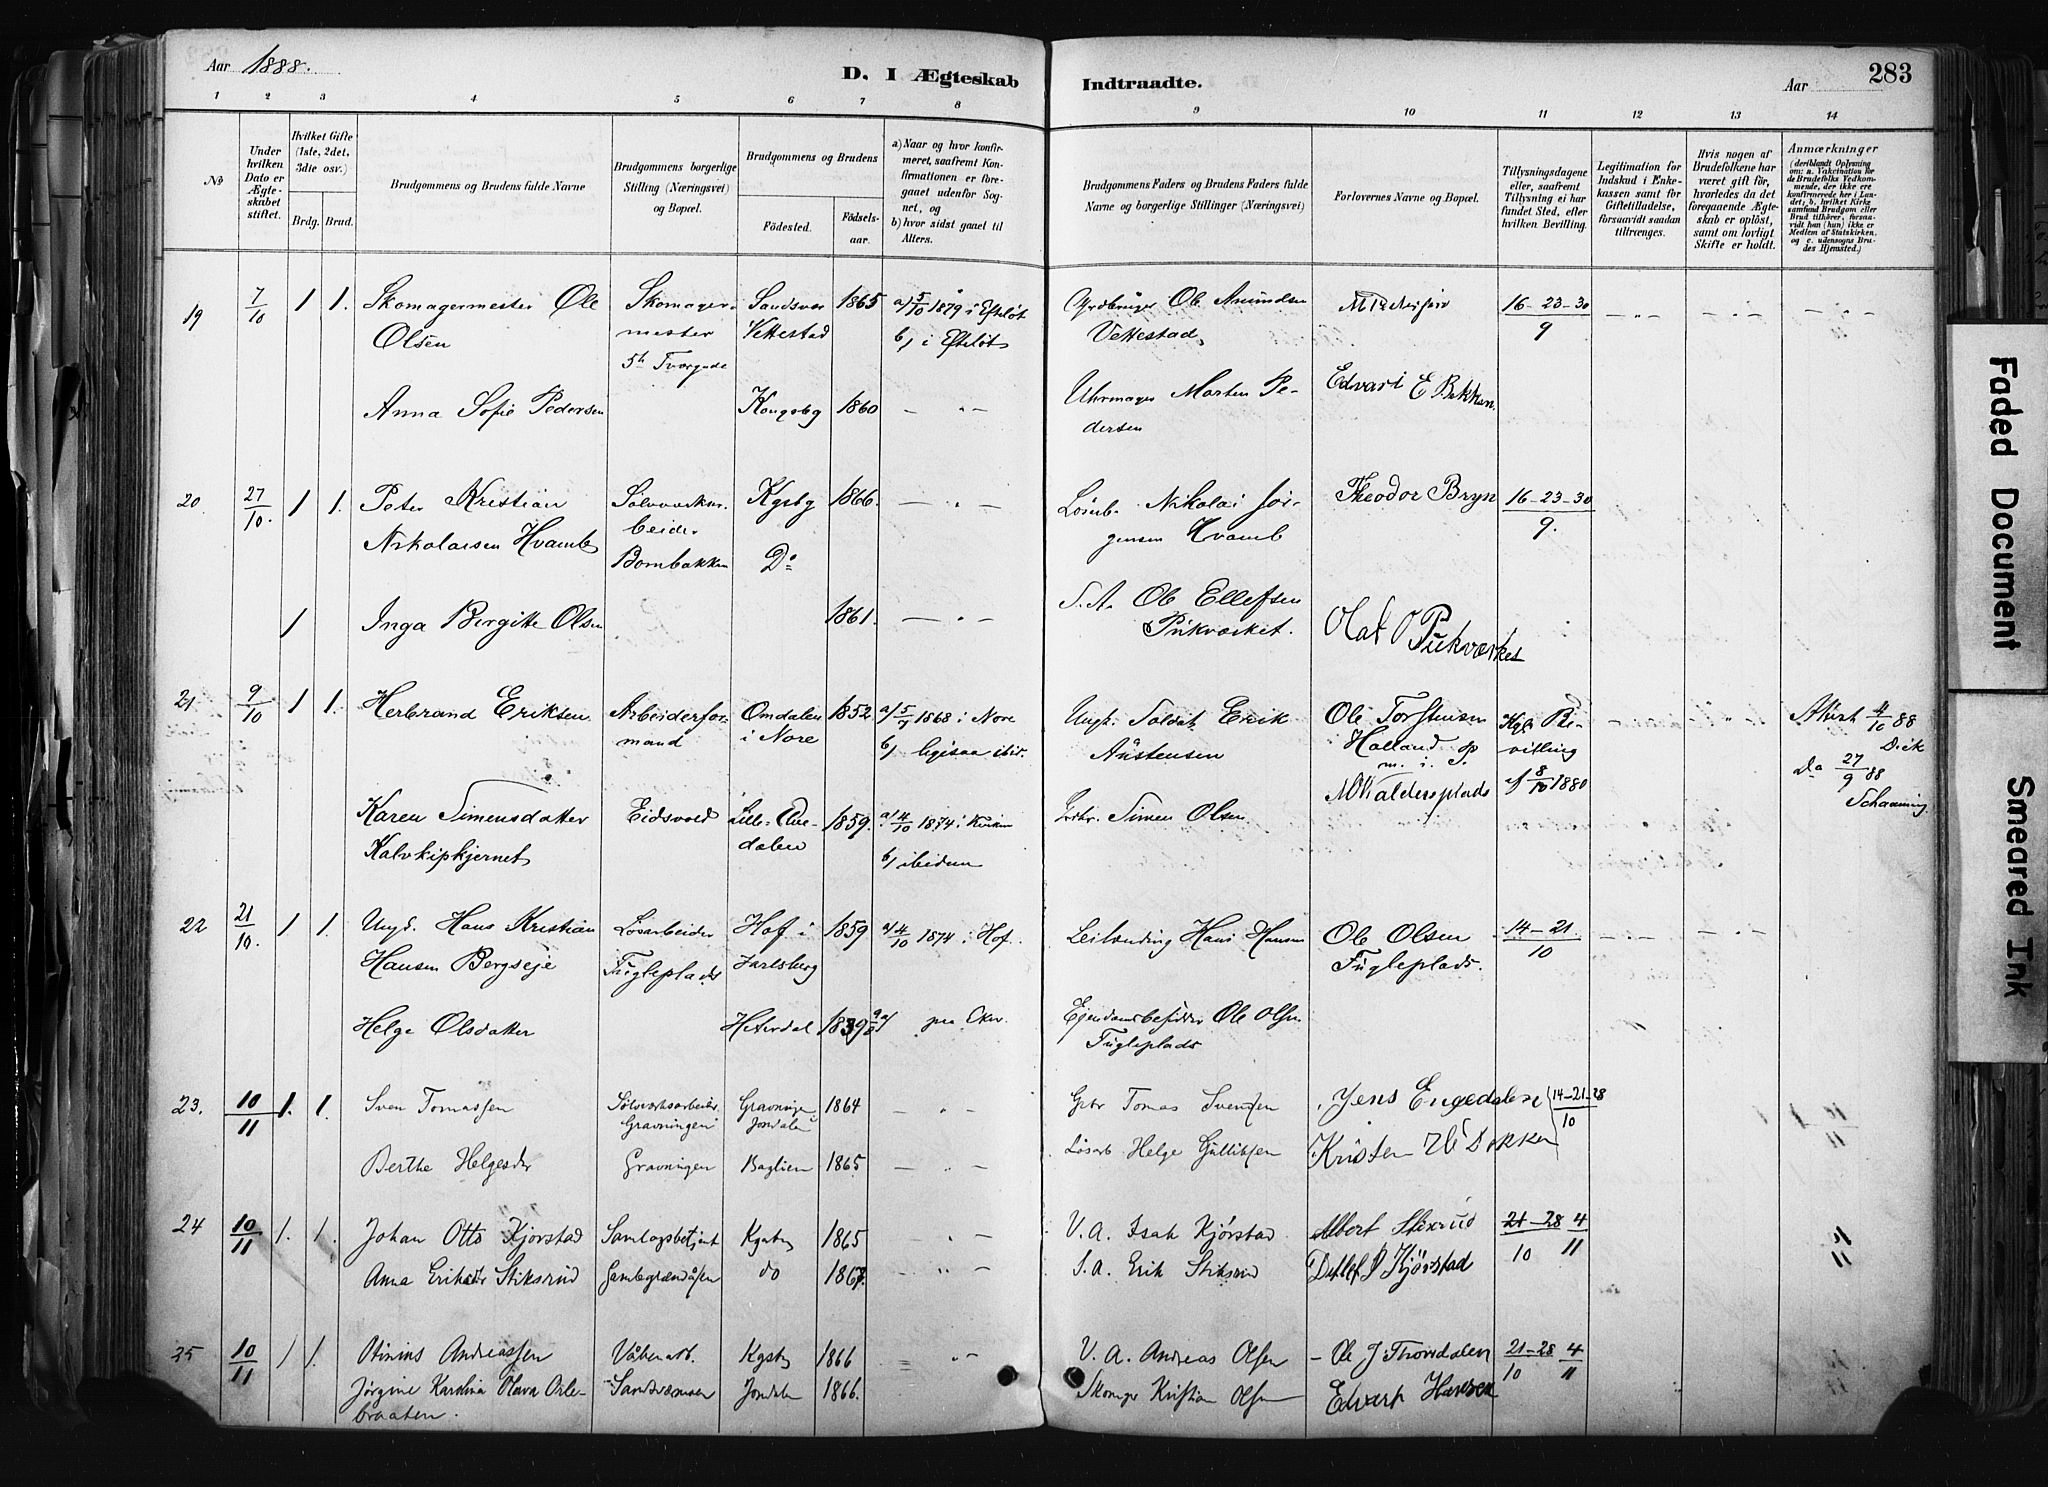 Aar 1888.
D. I Ægteskab
Indtraadte.
Aar
283
1 2 3 4 5 6 7 8 9 10 11 12 13 14
No
Under hvilken Dato er Ægteskabet stiftet.
Hvilket Gifte (1ste, 2det, 3die osv.)
Brdg. Brud.
Brudgommens og Brudens fulde Navne
Brudgommens borgerlige Stilling (Næringsvei) og Bopæl.
Brudgommens og Brudens
Fødested.
Fødselsaar.
a) Naar og hvor konfirmeret, saafremt Konfirmationen er foregaaet udenfor Sognet, og
b) hvor sidst gaaet til Alters.
Brudgommens Faders og Brudens Faders fulde Navne og borgerlige Stillinger (Næringsvei)
Forlovernes Navne og Bopæl.
Tillysningsdagene eller, saafremt Tillysning ei har fundet Sted, efter hvilken Bevilling.
Legitimation for Indskud i Enkekassen samt for Giftetilladelse, forsaavidt saadan tiltrænges.
Hvis nogen af Brudefolkene har været gift før, hvorledes da det foregaaende Ægteskab er opløst, samt om lovligt Skifte er holdt.
Anmærkninger
(deriblandt Oplysning om: a. Vakcination for de Brudefolks Vedkommende, der ikke ere konfirmerede her i Landet; b. hvilket Kirkesamfund Brudgom eller Brud tilhører, forsaavidt han (hun) ikke er Medlem af Statskirken, og c. udensogns Brudes Hjemsted.)
19 7/10 1 1. Skomagermester Ole Skomager- Sandsvær 1865 a) 5/10 1879 i Efteløt Ole Amundsen 16-23-30
Olsen mester Vettestad b) i Efteløt Vettestad 9
5te Tvergade
Anna Sofie Pedersen Kongsbg 1860 Uhrmager Morten Pe- Edvart E Bekken.
dersen
20 27/10. 1 1. Peter Kristian Sølvverksar- Kgsbg 1866. Løsarb. Nikolai Jør- Theodor Bryn 16-23-30
Nikolaisen Hvamb beider gensen Hvamb 9.
Bombakken Do
1 Inga Birgitte Olsen 1861. S. A. Ole Ellefsen Olaf O Pukværket
Pukværket.
21 9/10 1 1. Herbrand Eriksen Arbeiderfor- Omdalen 1852 a) 5/7 1868 i Nore Soldat Erik Ole Torstensen Kgl. Be- Attest 4/10 88
mand i Nore b) ligesaa ibid. Austensen Holland villing Do 27/9 88
m. i. P. af 8/10 1880 Schanning
Karen Simensdatter Eidsvold Lille- 1859. a) 4/10 1874 i Simen Olsen.
Kalvkipkjernet dalen b) ibidem
22 21/10. 1 1. Ungk. Hans Kristian Løsarbeider Hof i 1859 a) 4/10 1874 i Hof. Leilænding Hans Hansen Ole Olsen 14-21.
Hansen Bergseje Fugleplads Jarlsberg Fugleplads. 10
Helge Olsdatter Hiterdal 1839 paa Eker Ejendomsbesidder Ole Olsen
Fugleplads
23. 10/11 1. 1. Sven Tomassen Sølvverksarbeider Gravningen 1864 Gbr Tomas Svensen Jens Engedalen 14-21-28
Gravningen Jondalen 10
Berthe Helgesdr Gravningen Baglien 1865 Løsarb Helge Gulliksen Kristen Dokken
24 10/11 1. 1. Johan Otto Kjørstad Samlagsbetjent Kgsbg 1865 V. A. Isak Kjørstad Albert Stiksrud 21-28 4
Anna Eriksdr Stiksrud do 1867. S. A. Erik Stiksrud Detlef J Kjørstad 10 11
25 10/11 1 1. Otinius Andreassen Våbenarb. Kgsbg 1866 V. A. Andreas Olsen Ole J Thorsdalen 21-28 4
Jørgine Karolina Olava Osle- Sandsværmoen Jondalen 1866. Skomager Kristian Olsen Edvart Hansen 10 11
braaten.
Faded Document
Smeared Ink